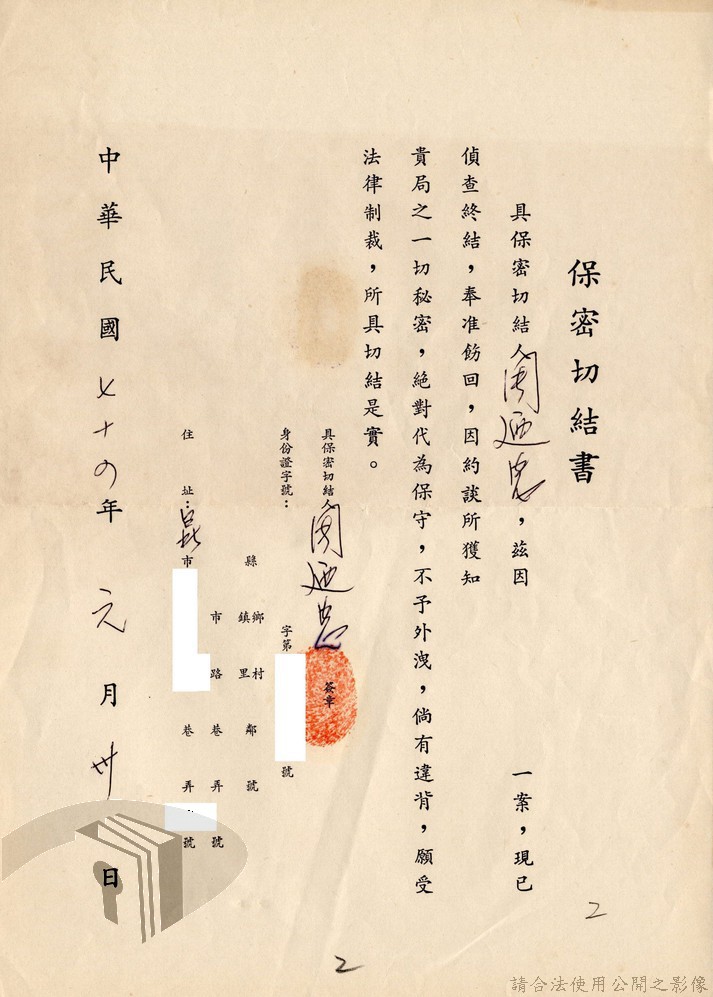 保密切結書
具保密切結人周迺忠,茲因　　　　一案,現已
偵查終結,奉准飭回,因約談所獲知
貴局之一切秘密,絕對代為保守,不予外洩,倘有違背,願受
法律制裁,所具切結是實。
具保密切結人周迺忠 簽章
身份證字號: 字第 號
縣 鄉鎮 村里 鄰 號
市 路 巷 弄 號
住址: 市 巷 弄 號
中華民國七十四年元月卅日
2
2
請合法使用公開之影像